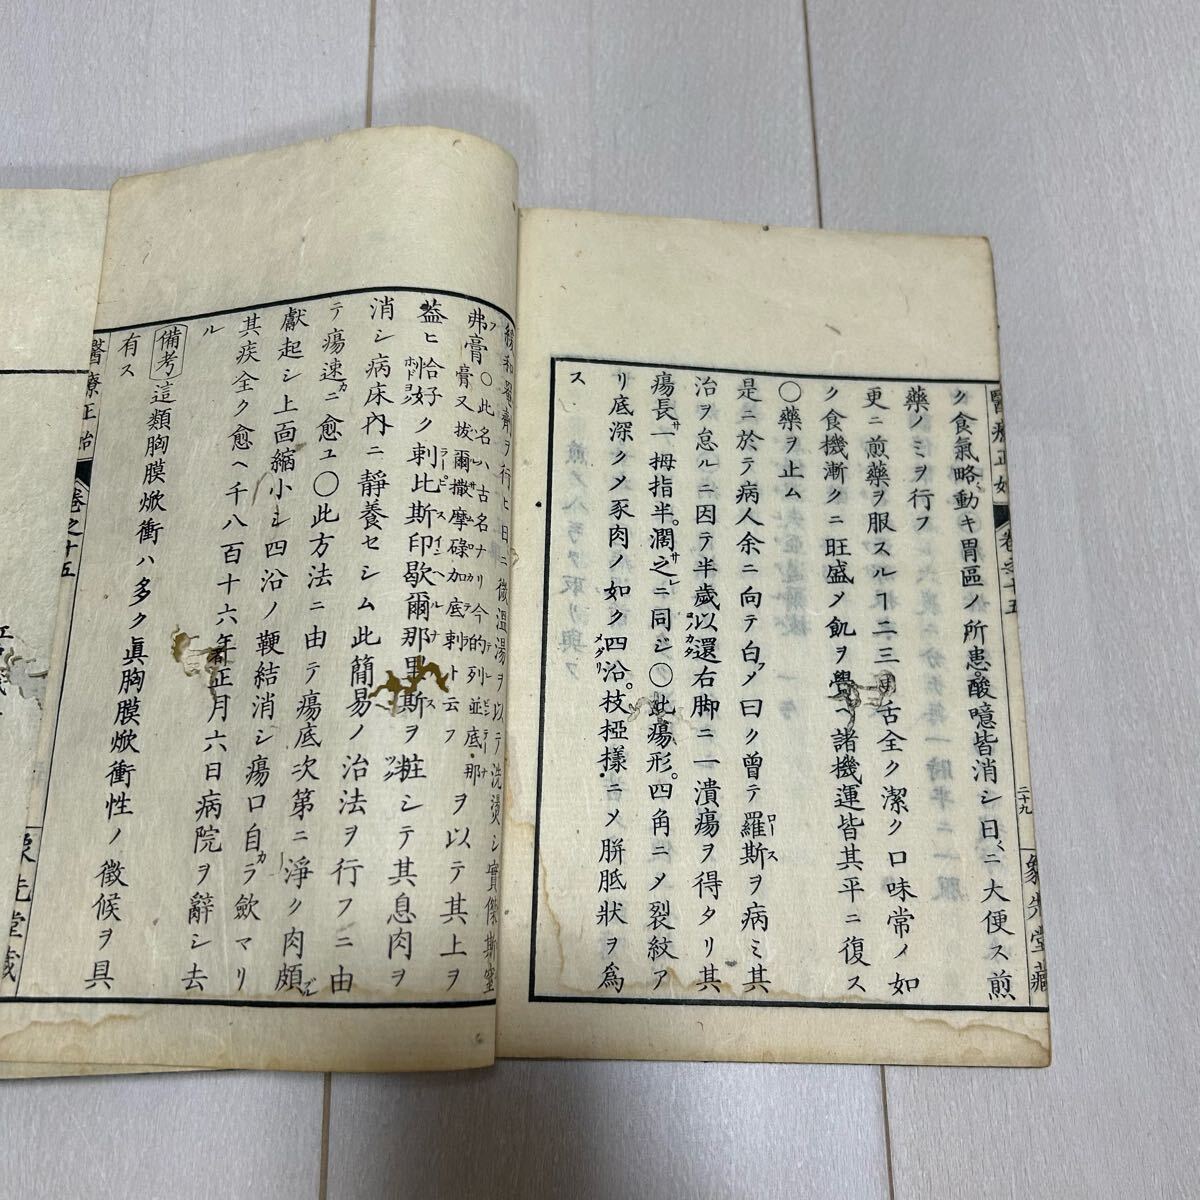 醫療正始
卷之十五
二十九
象先堂藏
ク食氣略動キ胃區ノ所患酸噫皆消シ日ニ大便ス煎
藥ノミヲ行フ
更ニ煎藥ヲ服スルヿ二三日舌全ク潔ク口味常ノ如
ク食機漸クニ旺盛メ飢ヲ覺ヘ諸機運皆其平ニ復ス
〇藥ヲ止ム
是ニ於テ病人余ニ向テ白メ曰ク曾テ羅斯ヲ病ミ其
治ヲ怠ルニ因テ半歲以還右脚ニ一潰瘍ヲ得タリ其
瘍長サ一拇指半濶サ之ニ同ジ〇此瘍形四角ニメ裂紋ア
リ底深クメ豕肉ノ如ク四沿枝椏樣ニメ胼胝狀ヲ爲
ス
緩和蒸劑ヲ行ヒ日ニ微溫湯ヲ以テ洗盪シ實傑斯蜜
弗膏〇此名ハ古名ナリ今的列並底那
膏又拔爾撒摩碌加底剌ト云フヲ以テ其上ヲ
葢ヒ恰好ク剌比斯印歇爾那里斯ヲ粧シテ其息肉ヲ
消シ病床內ニ靜養セシム此簡易ノ治法ヲ行フニ由
テ瘍速カニ愈ユ〇此方法ニ由テ瘍底次第ニ淨ク肉頗
獻起シ上面縮小シ四沿ノ鞕結消シ瘍口自カラ歛マリ
其疾全ク愈ヘ千八百十六年正月六日病院ヲ辭シ去
ル
備考 這類胸膜焮衝ハ多ク眞胸膜焮衝性ノ徵候ヲ具
有ス
醫療正始
卷之十五
象先堂藏